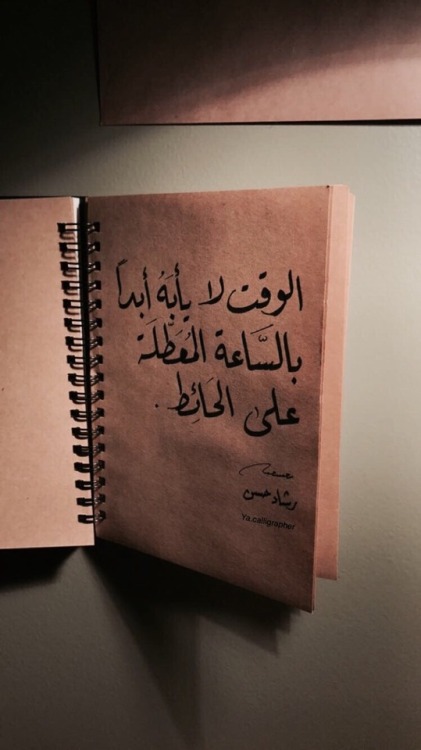 الوقت لا يأبَهُ أبداً
بالسَّاعة المُعَطَّلَة
على الحَائِط .
رشاد حسن
Ya.calligrapher